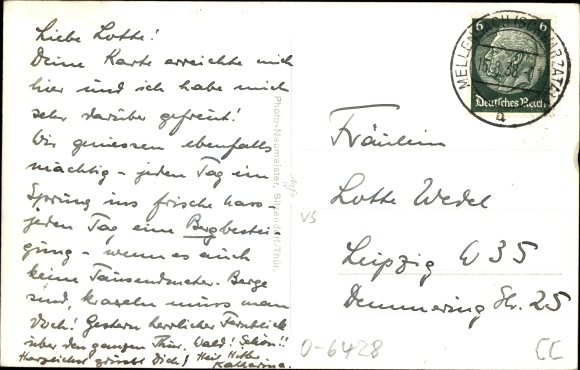 Liebe Lotte!
Deine Karte erreichte mich
hier und ich habe mich
sehr darüber gefreut!
Wir geniessen ebenfalls
mächtig - jeden Tag ein
Sprung ins frische Nass -
jeden Tag eine Bergbestei-
gung - wenn es auch
keine Tausendmeter-Berge
sind, kraxeln muss man
doch! Gestern herrlicher Fernblick
über den ganzen Thür. Wald! Schön!!
Herzlichst grüsst Dich! Heil Hitler
Katharina.
Photo-Naumeister, Sitzendorf/Thür.
6 6
Deutsches Reich
MELLENBACH (SCHWARZATAL)
b
Fräulein
Lotte Wedel
Leipzig W 35
Demmering Str. 25
VS
0-6428
CC